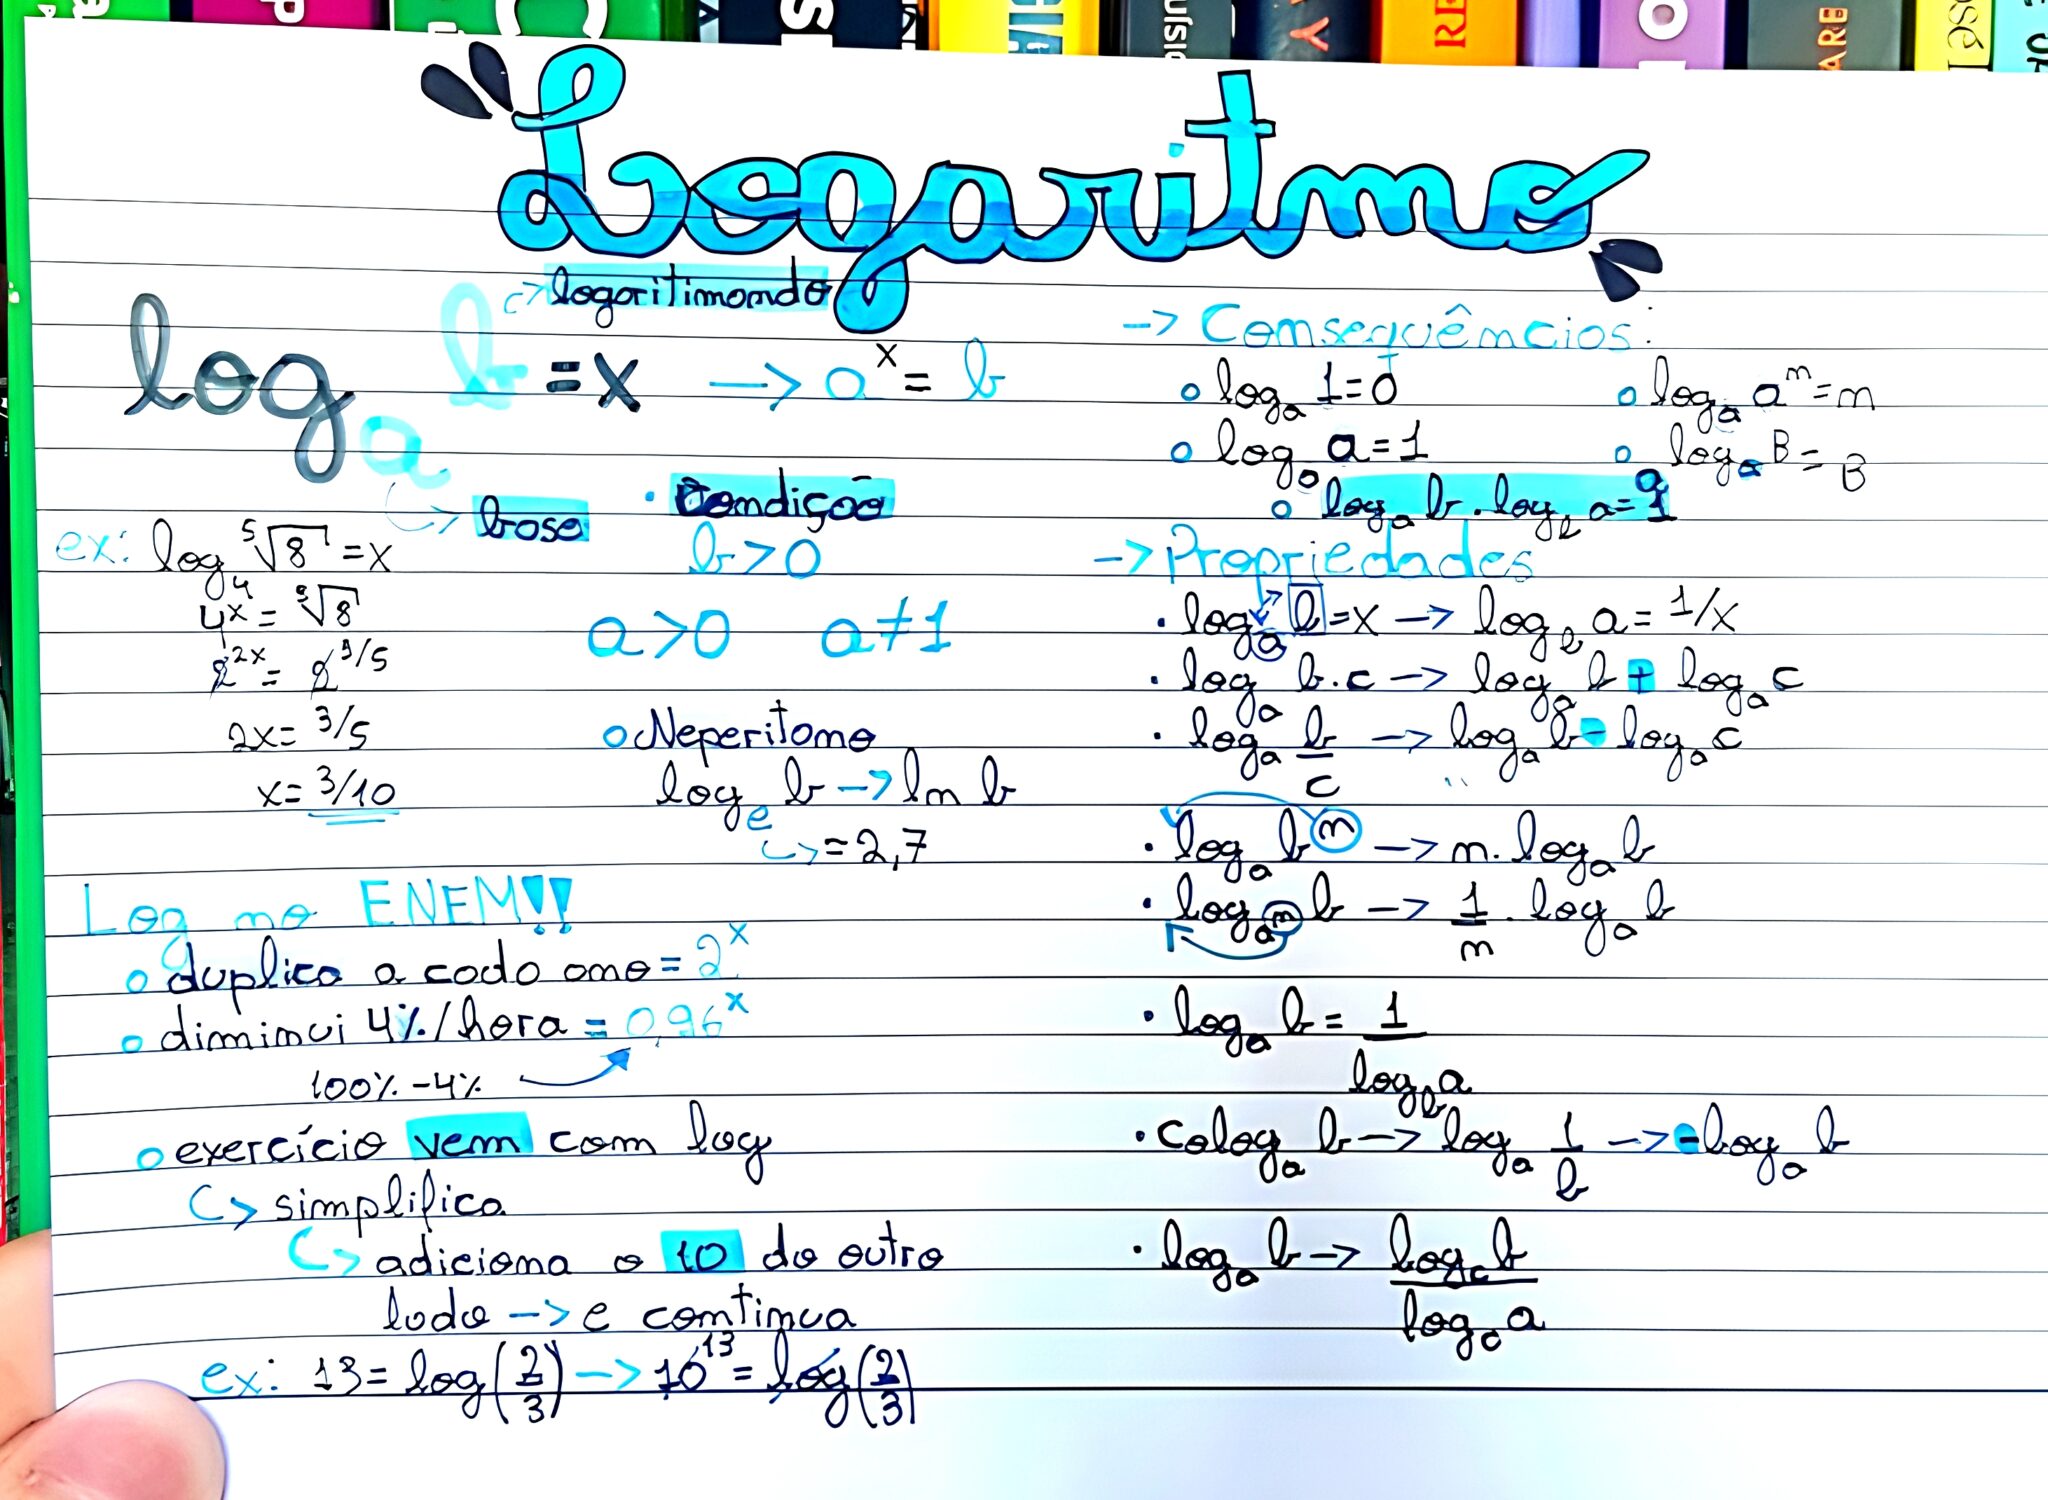 Logaritmo
logaritimando
logₐ b = x → aˣ = b
base
ex: log₄ ⁵√8 = x
4ˣ = ⁵√8
2²ˣ = 2³/⁵
2x = 3/5
x = 3/10
• Condição
b > 0
a > 0 a ≠ 1
○ Neperitomo
logₑ b → ln b
= 2,7
Log no ENEM!!
○ duplica a cada ano = 2ˣ
○ diminui 4% / hora = 0,96ˣ
100% - 4%
○ exercício vem com log
↳ simplifica
↳ adiciona o 10 do outro
lado → e continua
ex: 13 = log(2/3) → 10¹³ = log(2/3)
→ Consequências:
○ logₐ 1 = 0
○ logₐ aᵐ = m
○ logₐ a = 1
○ a^(logₐ B) = B
○ logₐ b . log_b a = 1
→ Propriedades
• logₐ b = x → log_b a = 1/x
• logₐ b.c → logₐ b + logₐ c
• logₐ b/c → logₐ b - logₐ c
• logₐ bⁿ → n. logₐ b
• log_(aⁿ) b → 1/n . logₐ b
• logₐ b = 1/log_b a
• cologₐ b → logₐ 1/b → -logₐ b
• logₐ b → log_c b / log_c a